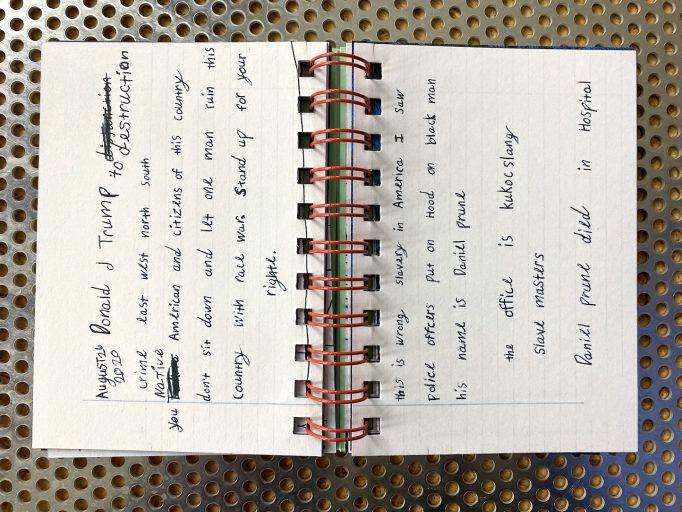 August 26 2020 Donald J Trump to destruction
crime east west north south
Native
you American and citizens of this country
don't sit down and let one man ruin this
country with race war. Stand up for your
righte.
this is wrong slavery in America I saw
police officers put on Hood on black man
his name is Daniel prune
the office is kukoc slang
slave masters
Daniel prune died in Hospital